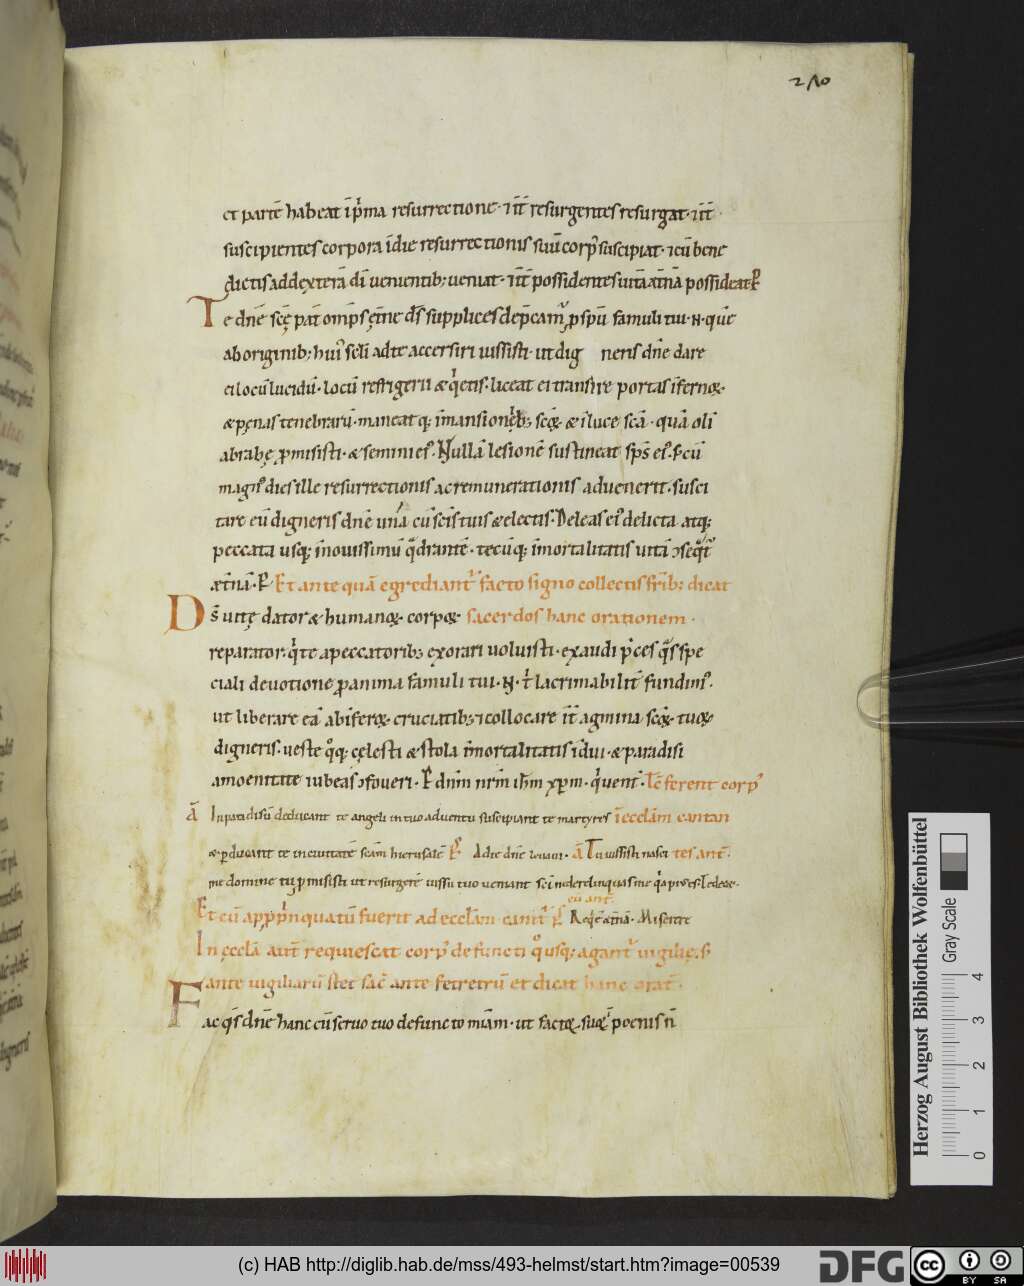 210
et partē habeat īp̄ma resurrectione· ⁊ īt̄ resurgentes resurgat· ⁊ īt̄
suscipientes corpora īdie resurrectionis suū corp᷒ suscipiat· ⁊ cū bene
dictis ad dexterā dī uenientib; ueniat· ⁊ īt̄ possidentes uitā æt̄nā possideat P̄
Te dn̄e sc̄ę pat̄ omp̄s ęt̄ne ds̄ supplices dep̄cam᷒ ꝓ spū famuli tui ·N· quē
ab originib; hui᷒ sc̄li ad te accersiri iussisti· ut dig neris dn̄e dare
ei locū lucidū· locū refrigerii & q'etis· liceat ei transire portas īfernoꝝ·
& pęnas tenebrarū· maneatq; īmansionib; sc̄oꝝ & īluce sc̄ā· quā olī
abrahę ꝓmisisti· & semini ei᷒· Nullā lesionē sustineat sp̄s ei᷒· s; cū
magn᷒ dies ille resurrectionis ac remunerationis aduenerit· susci
tare eū digneris dn̄e unā cū sc̄is tuis & electis· Deleas ei᷒ delicta atq;
peccata usq; īnouissimū q̄drantē· tecūq; īmortalitatis uitā ↄseq̄t᷒
æt̄nā· P̄ Et ante quā egrediant᷒ facto signo collectis fr̄ib; dicat
Ds̄ uitę dator & humanoꝝ corpoꝝ sacerdos hanc orationem·
reparator· q' te a peccatorib; exorari uoluisti· exaudi p̄ces q̄s spe
ciali deuotione ꝓ anima famuli tui ·N· t' lacrimabilit̄ fundim᷒·
ut liberare eā ab īferoꝝ cruciatib; ⁊ collocare īt̄ agmina sc̄oꝝ tuoꝝ
digneris· ueste q̊q; cęlesti & stola īmortalitatis īdui· & paradisi
amoenitate iubeas ↄfoueri· P̄ dn̄m nr̄m ih̄m xp̄m· q' uent̄· Tc̄ ferent corp᷒
ā In paradisū deducant te angeli in tuo aduentu suscipiant te martyres ī eccl̄am cantan
& ꝑducant te in ciuitatē sc̄am hierusalē P̄ Ad te dn̄e leuaui· ā Tu iussisti nasci tes ant̄·
me domine tu ꝓmisisti ut resurgerē iussu tuo ueniant sc̄i ne derelinquas me q̄a pius es
eu ant̄·
Et cū apꝓpīnquatū fuerit ad eccl̄am cant̄ P̄ Req'ē æt̄nā· Miserere
In eccl̄a aut̄ requiescat corp᷒ defuncti q̊usq; agant᷒ uigilię· s;
ante uigiliarū stet sac̄ ante feretrū et dicat hanc orat̄·
Fac q̄s dn̄e hanc cū seruo tuo defuncto mīam· ut factoꝝ suoꝝ ī poenis n̄
Herzog August Bibliothek Wolfenbüttel
Gray Scale
0 1 2 3 4
(c) HAB http://diglib.hab.de/mss/493-helmst/start.htm?image=00539
DFG
cc BY SA